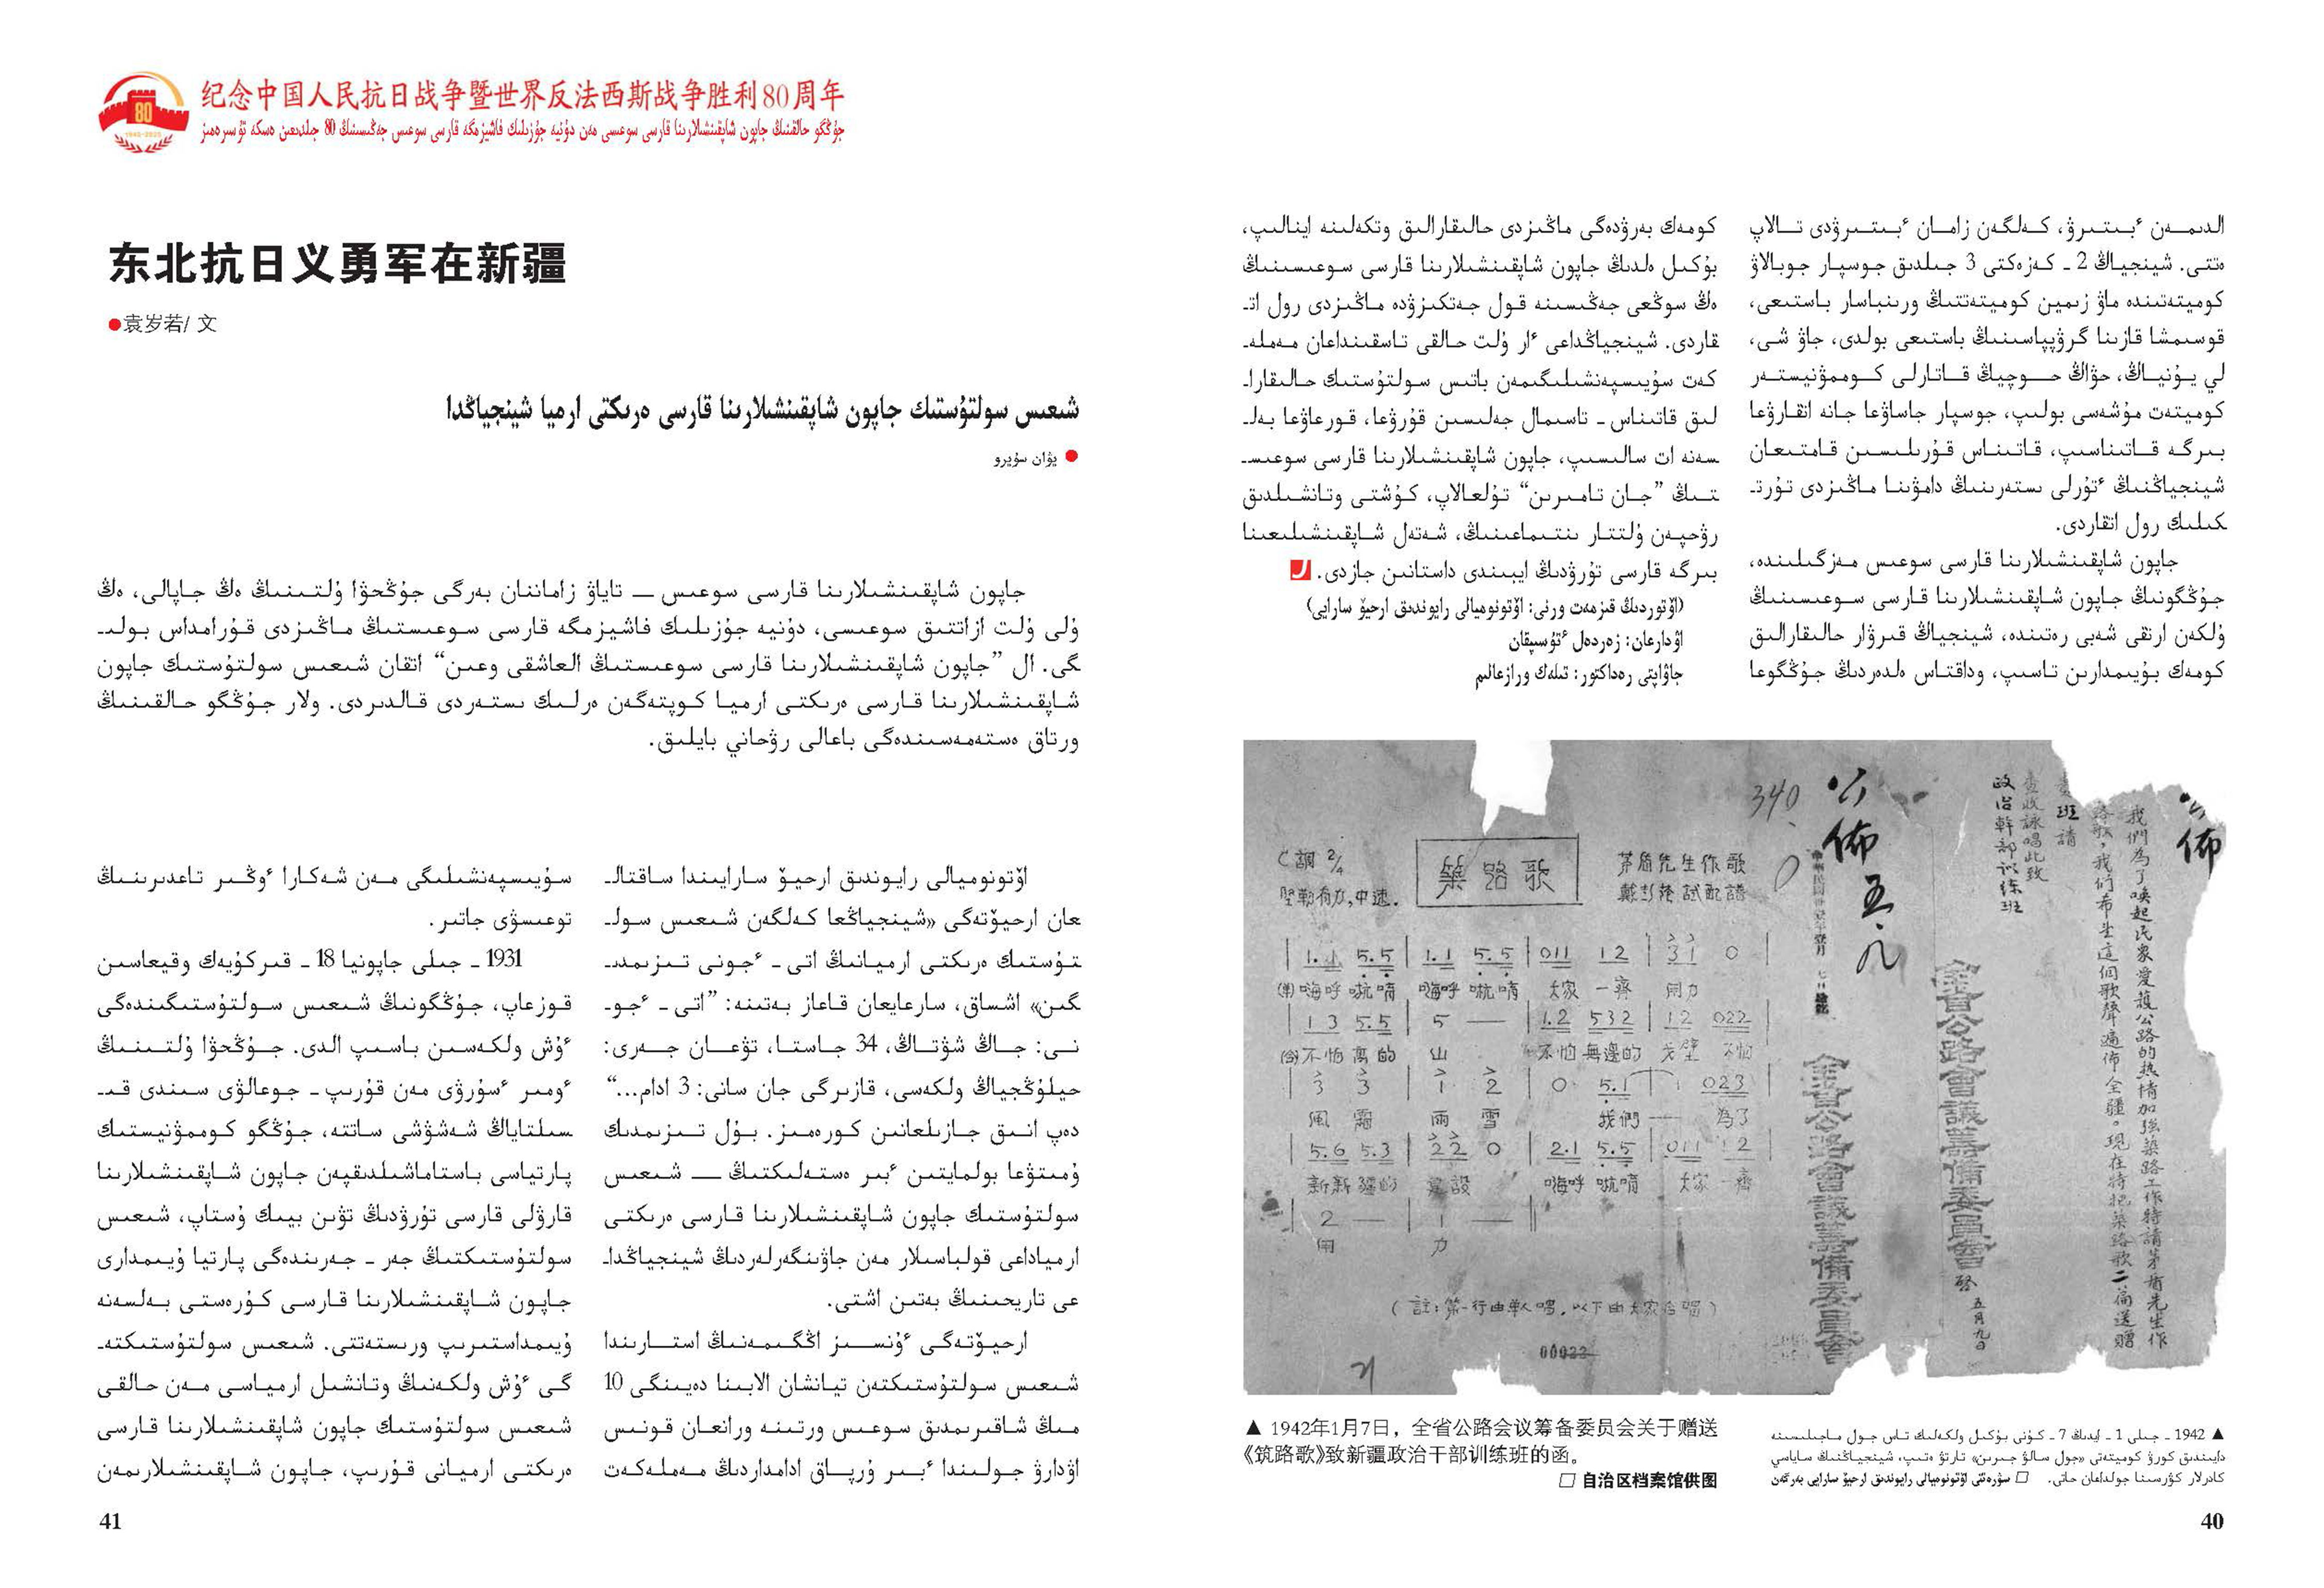 الدىمەن ٴبىتىرۋ، كەلگەن زامان ٴبىتىرۋدى تالاپ
ەتتى. شينجياڭ 2 - كەزەكتى 3 جىلدىق جوسپار جوبالاۋ
كوميتەتىندە ماۋ زىمين كوميتەتتىڭ ورىنباسار باستىعى،
قوسىمشا قازىنا گرۋپپاسىنىڭ باستىعى بولدى، جاۋ شى،
لي يۇنياڭ، حۋاڭ حوچيڭ قاتارلى كوممۋنيستەر
كوميتەت مۇشەسى بولىپ، جوسپار جاساۋعا جانە اتقارۋعا
بىرگە قاتىناسىپ، قاتىناس قۇرىلىسىن قامتىعان
شينجياڭنىڭ ٴتۇرلى ىستەرىنىڭ دامۋىنا ماڭىزدى تۇرت-
كىلىك رول اتقاردى.
جاپون شاپقىنشىلارىنا قارسى سوعىس مەزگىلىندە،
جۇڭگونىڭ جاپون شاپقىنشىلارىنا قارسى سوعىسىنىڭ
ۇلكەن ارتقى شەبى رەتىندە، شينجياڭ قىرۋار حالىقارالىق
كومەك بۇيىمدارىن تاسىپ، وداقتاس ەلدەردىڭ جۇڭگوعا
كومەك بەرۋدەگى ماڭىزدى حالىقارالىق وتكەلىنە اينالىپ،
بۇكىل ەلدىڭ جاپون شاپقىنشىلارىنا قارسى سوعىسىنىڭ
ەڭ سوڭعى جەڭىسىنە قول جەتكىزۋدە ماڭىزدى رول ات-
قاردى. شينجياڭداعى ٴار ۇلت حالقى تاسقىنداعان مەملە-
كەت سۇيىسپەنشىلىگىمەن باتىس سولتۇستىك حالىقارا-
لىق قاتىناس - تاسىمال جەلىسىن قۇرۋعا، قورعاۋعا بەل-
سەنە ات سالىسىپ، جاپون شاپقىنشىلارىنا قارسى سوعىس-
تىڭ ”جان تامىرىن“ تۇلعالاپ، كۇشتى وتانشىلدىق
رۋحپەن ۇلتتار ىنتىماعىنىڭ، شەتەل شاپقىنشىلىعىنا
بىرگە قارسى تۇرۋدىڭ ايبىندى داستانىن جازدى.
(اۆتوردىڭ قىزمەت ورنى: اۆتونوميالى رايوندىق ارحيۆ سارايى)
اۋدارعان: زەردەل ٴتۇسىپقان
جاۋاپتى رەداكتور: تىلەك ورازعالىم
公佈
我們為了喚起民衆愛護公路的热情加强築路工作特請茅盾先生作
路歌,我们希望這個歌聲遍佈全疆。現在特把築路歌二份送贈
貴班請
查收詠唱此致
政治幹部訓练班
全省公路會議籌備委員會 啓 五月九日
公佈 五.八
全省公路會議籌備委員會
340
C調 2/4
築路歌
茅盾先生作歌
坚勒有力,中速.
試配譜
1.1 5.5 | 1.1 5.5 | 011 12 | 31 0 |
嗨呼 吭唷 嗨呼 吭唷 大家 一齊 用力
1 3 5.5 | 5 — | 1.2 532 | 12 022 |
不怕高的 山 不怕無邊的 戈壁 不怕
3 3 | 1 2 | 0 5.1 | 1 023 |
風 霜 雨 雪 我們 — 為了
5.6 5.3 | 22 0 | 2.1 5.5 | 011 12 |
新新疆的 建設 嗨呼 吭唷 大家 一齊
2 — | 1 — ‖
用 力
(註:第一行由單人唱,以下由大家合唱)
00022
▲ 1942年1月7日，全省公路会议筹备委员会关于赠送
《筑路歌》致新疆政治干部训练班的函。
□ 自治区档案馆供图
▲ 1942 - جىلى 1 - ايدىڭ 7 - كۇنى بۇكىل ولكەلىك تاس جول ماجىلىسىنە
دايىندىق كورۋ كوميتەتى «جول سالۋ جىرىن» تارتۋ ەتىپ، شينجياڭنىڭ ساياسي
كادرلار كۋرسىنا جولداعان حاتى. □ سۋرەتتى اۆتونوميالى رايوندىق ارحيۆ سارايى بەرگەن
40
80
1945-2025
纪念中国人民抗日战争暨世界反法西斯战争胜利80周年
جۇڭگو حالقىنىڭ جاپون شاپقىنشىلارىنا قارسى سوعىسى مەن دۇنيە جۇزىلىك فاشيزمگە قارسى سوعىس جەڭىسىنىڭ 80 جىلدىعىن ەسكە تۇسىرەمىز
东北抗日义勇军在新疆
●袁岁若/ 文
شىعىس سولتۇستىك جاپون شاپقىنشىلارىنا قارسى ەرىكتى ارميا شينجياڭدا
● يۋان سۇيرو
جاپون شاپقىنشىلارىنا قارسى سوعىس — تاياۋ زاماننان بەرگى جۇڭحۋا ۇلتىنىڭ ەڭ جاپالى، ەڭ
ۇلى ۇلت ازاتتىق سوعىسى، دۇنيە جۇزىلىك فاشيزمگە قارسى سوعىستىڭ ماڭىزدى قۇرامداس بولى-
گى. ال ”جاپون شاپقىنشىلارىنا قارسى سوعىستىڭ العاشقى وعىن“ اتقان شىعىس سولتۇستىك جاپون
شاپقىنشىلارىنا قارسى ەرىكتى ارميا كوپتەگەن ەرلىك ىستەردى قالدىردى. ولار جۇڭگو حالقىنىڭ
ورتاق ەستەمەسىندەگى باعالى رۋحاني بايلىق.
اۆتونوميالى رايوندىق ارحيۆ سارايىندا ساقتال-
عان ارحيۆتەگى «شينجياڭعا كەلگەن شىعىس سول-
تۇستىك ەرىكتى ارميانىڭ اتى - ٴجونى تىزىمدى-
گىن» اشساق، سارعايعان قاعاز بەتىنە: ”اتى - ٴجو-
نى: جاڭ شۋتاڭ، 34 جاستا، تۋعان جەرى:
حيلۇڭجياڭ ولكەسى، قازىرگى جان سانى: 3 ادام...“
دەپ انىق جازىلعانىن كورەمىز. بۇل تىزىمدىك
ۇمىتۋعا بولمايتىن ٴبىر ەستەلىكتىڭ — شىعىس
سولتۇستىك جاپون شاپقىنشىلارىنا قارسى ەرىكتى
ارمياداعى قولباسىلار مەن جاۋىنگەرلەردىڭ شينجياڭدا-
عى تاريحىنىڭ بەتىن اشتى.
ارحيۆتەگى ٴۇنسىز اڭگىمەنىڭ استارىندا
شىعىس سولتۇستىكتەن تيانشان الابىنا دەيىنگى 10
مىڭ شاقىرىمدىق سوعىس ورتىنە ورانعان قونىس
اۋدارۋ جولىندا ٴبىر ۇرپاق ادامداردىڭ مەملەكەت
سۇيىسپەنشىلىگى مەن شەكارا ٴوڭىر تاعدىرىنىڭ
توعىسۋى جاتىر.
1931 - جىلى جاپونيا 18 - قىركۇيەك وقيعاسىن
قوزعاپ، جۇڭگونىڭ شىعىس سولتۇستىگىندەگى
ٴۇش ولكەسىن باسىپ الدى. جۇڭحۋا ۇلتىنىڭ
ٴومىر ٴسۇرۋى مەن قۇرىپ - جوعالۋى سىندى قى-
سىلتاياڭ شەشۋشى ساتتە، جۇڭگو كوممۋنيستىك
پارتياسى باستاماشىلدىقپەن جاپون شاپقىنشىلارىنا
قارۋلى قارسى تۇرۋدىڭ تۋىن بيىك ۇستاپ، شىعىس
سولتۇستىكتىڭ جەر - جەرىندەگى پارتيا ۇيىمدارى
جاپون شاپقىنشىلارىنا قارسى كۇرەستى بەلسەنە
ۇيىمداستىرىپ ورىستەتتى. شىعىس سولتۇستىكتە-
گى ٴۇش ولكەنىڭ وتانشىل ارمياسى مەن حالقى
شىعىس سولتۇستىك جاپون شاپقىنشىلارىنا قارسى
ەرىكتى ارميانى قۇرىپ، جاپون شاپقىنشىلارىمەن
41